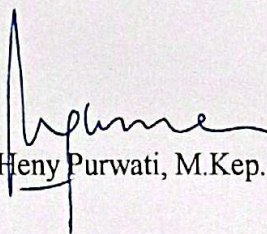 Heny Purwati, M.Kep.